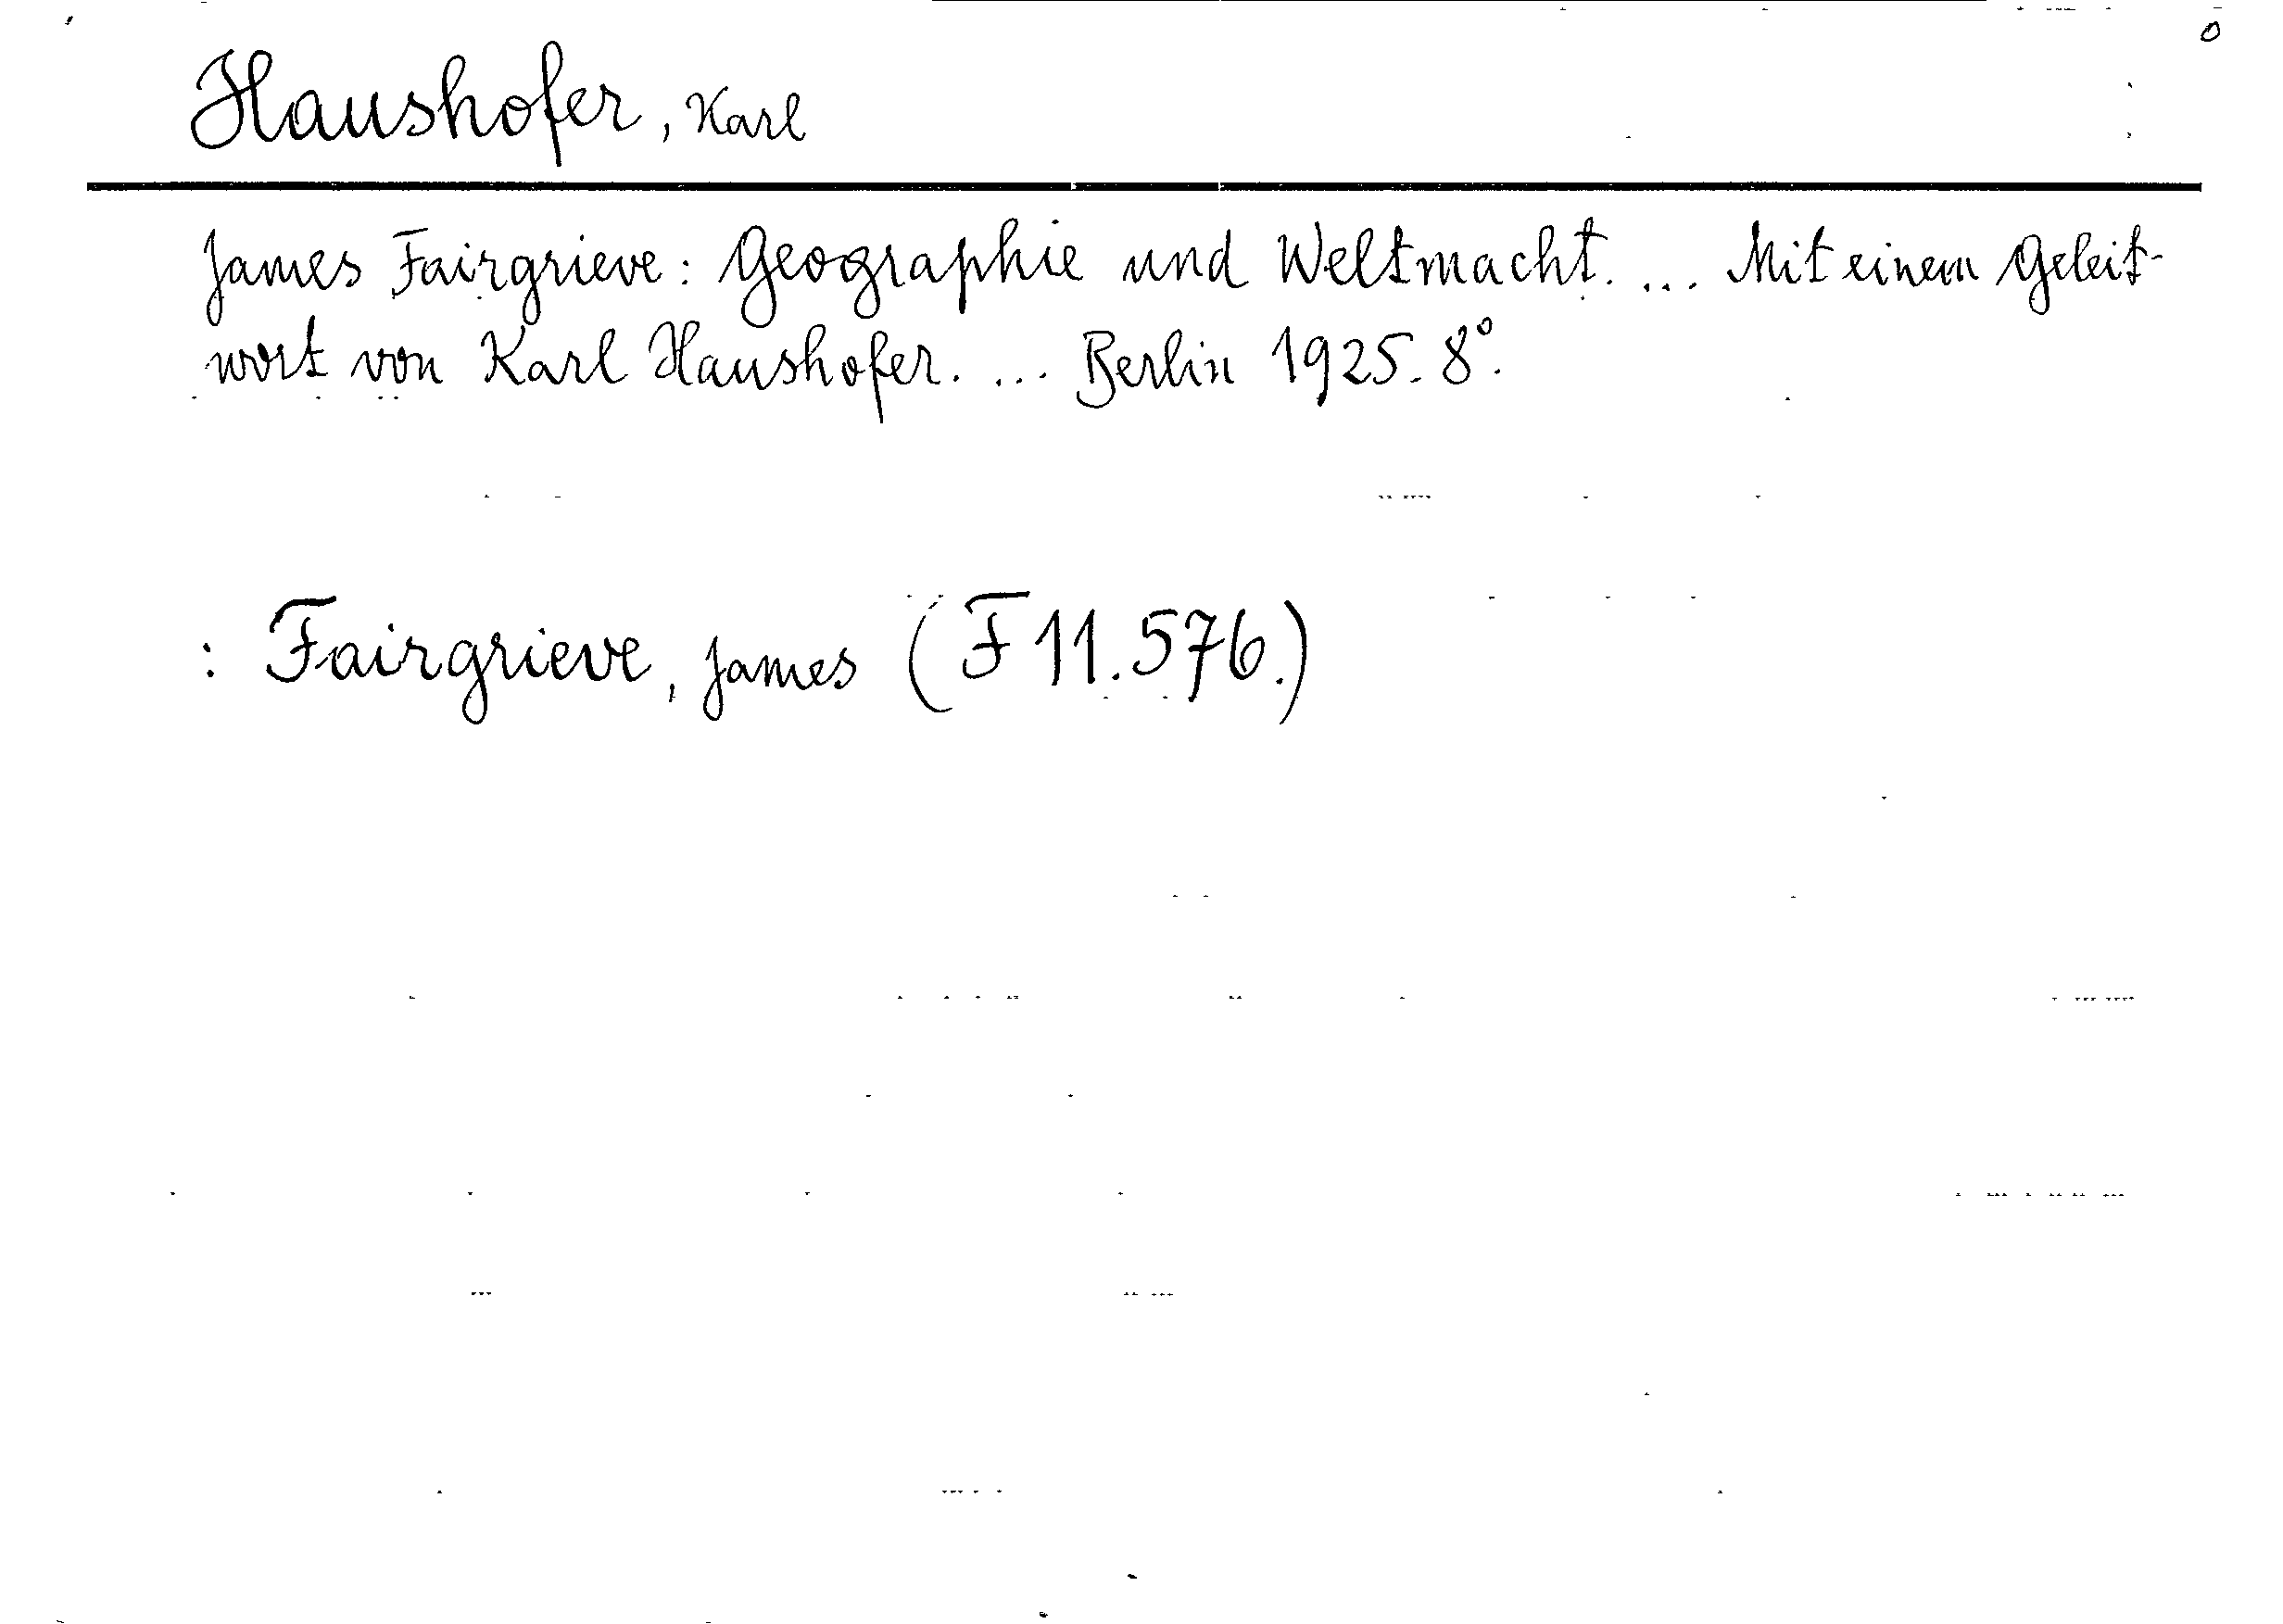 Haushofer, Karl
James Fairgrieve: Geographie und Weltmacht. ... Mit einem Geleit-
wort von Karl Haushofer. ... Berlin 1925. 8°.
: Fairgrieve, James (F 11.576.)